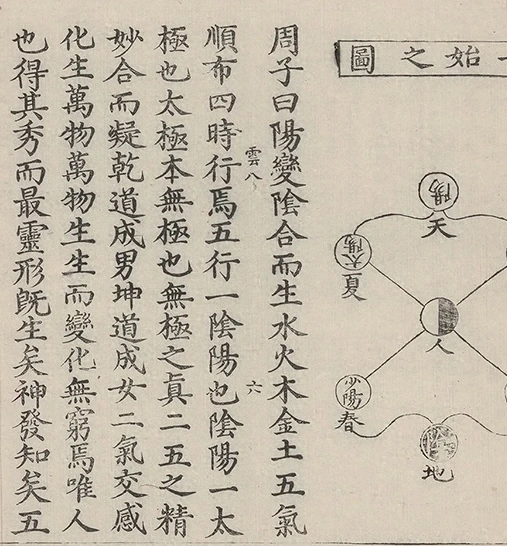 始之圖
陽
天
太陽
夏
人
少陽
春
地
周子曰陽變陰合而生水火木金土五氣
雲八
六
順布四時行焉五行一陰陽也陰陽一太
極也太極本無極也無極之眞二五之精
妙合而凝乾道成男坤道成女二氣交感
化生萬物萬物生生而變化無窮焉唯人
也得其秀而最靈形旣生矣神發知矣五